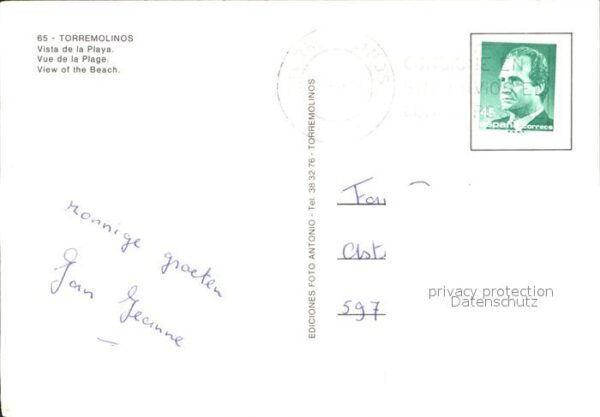 65 - TORREMOLINOS
Vista de la Playa.
Vue de la Plage.
View of the Beach.
CONSIGNE EN
45
España correos
EDICIONES FOTO ANTONIO - Tel. 38 32 76 - TORREMOLINOS
zonnige groeten
Jan Jeanne
Fam
597
privacy protection
Datenschutz